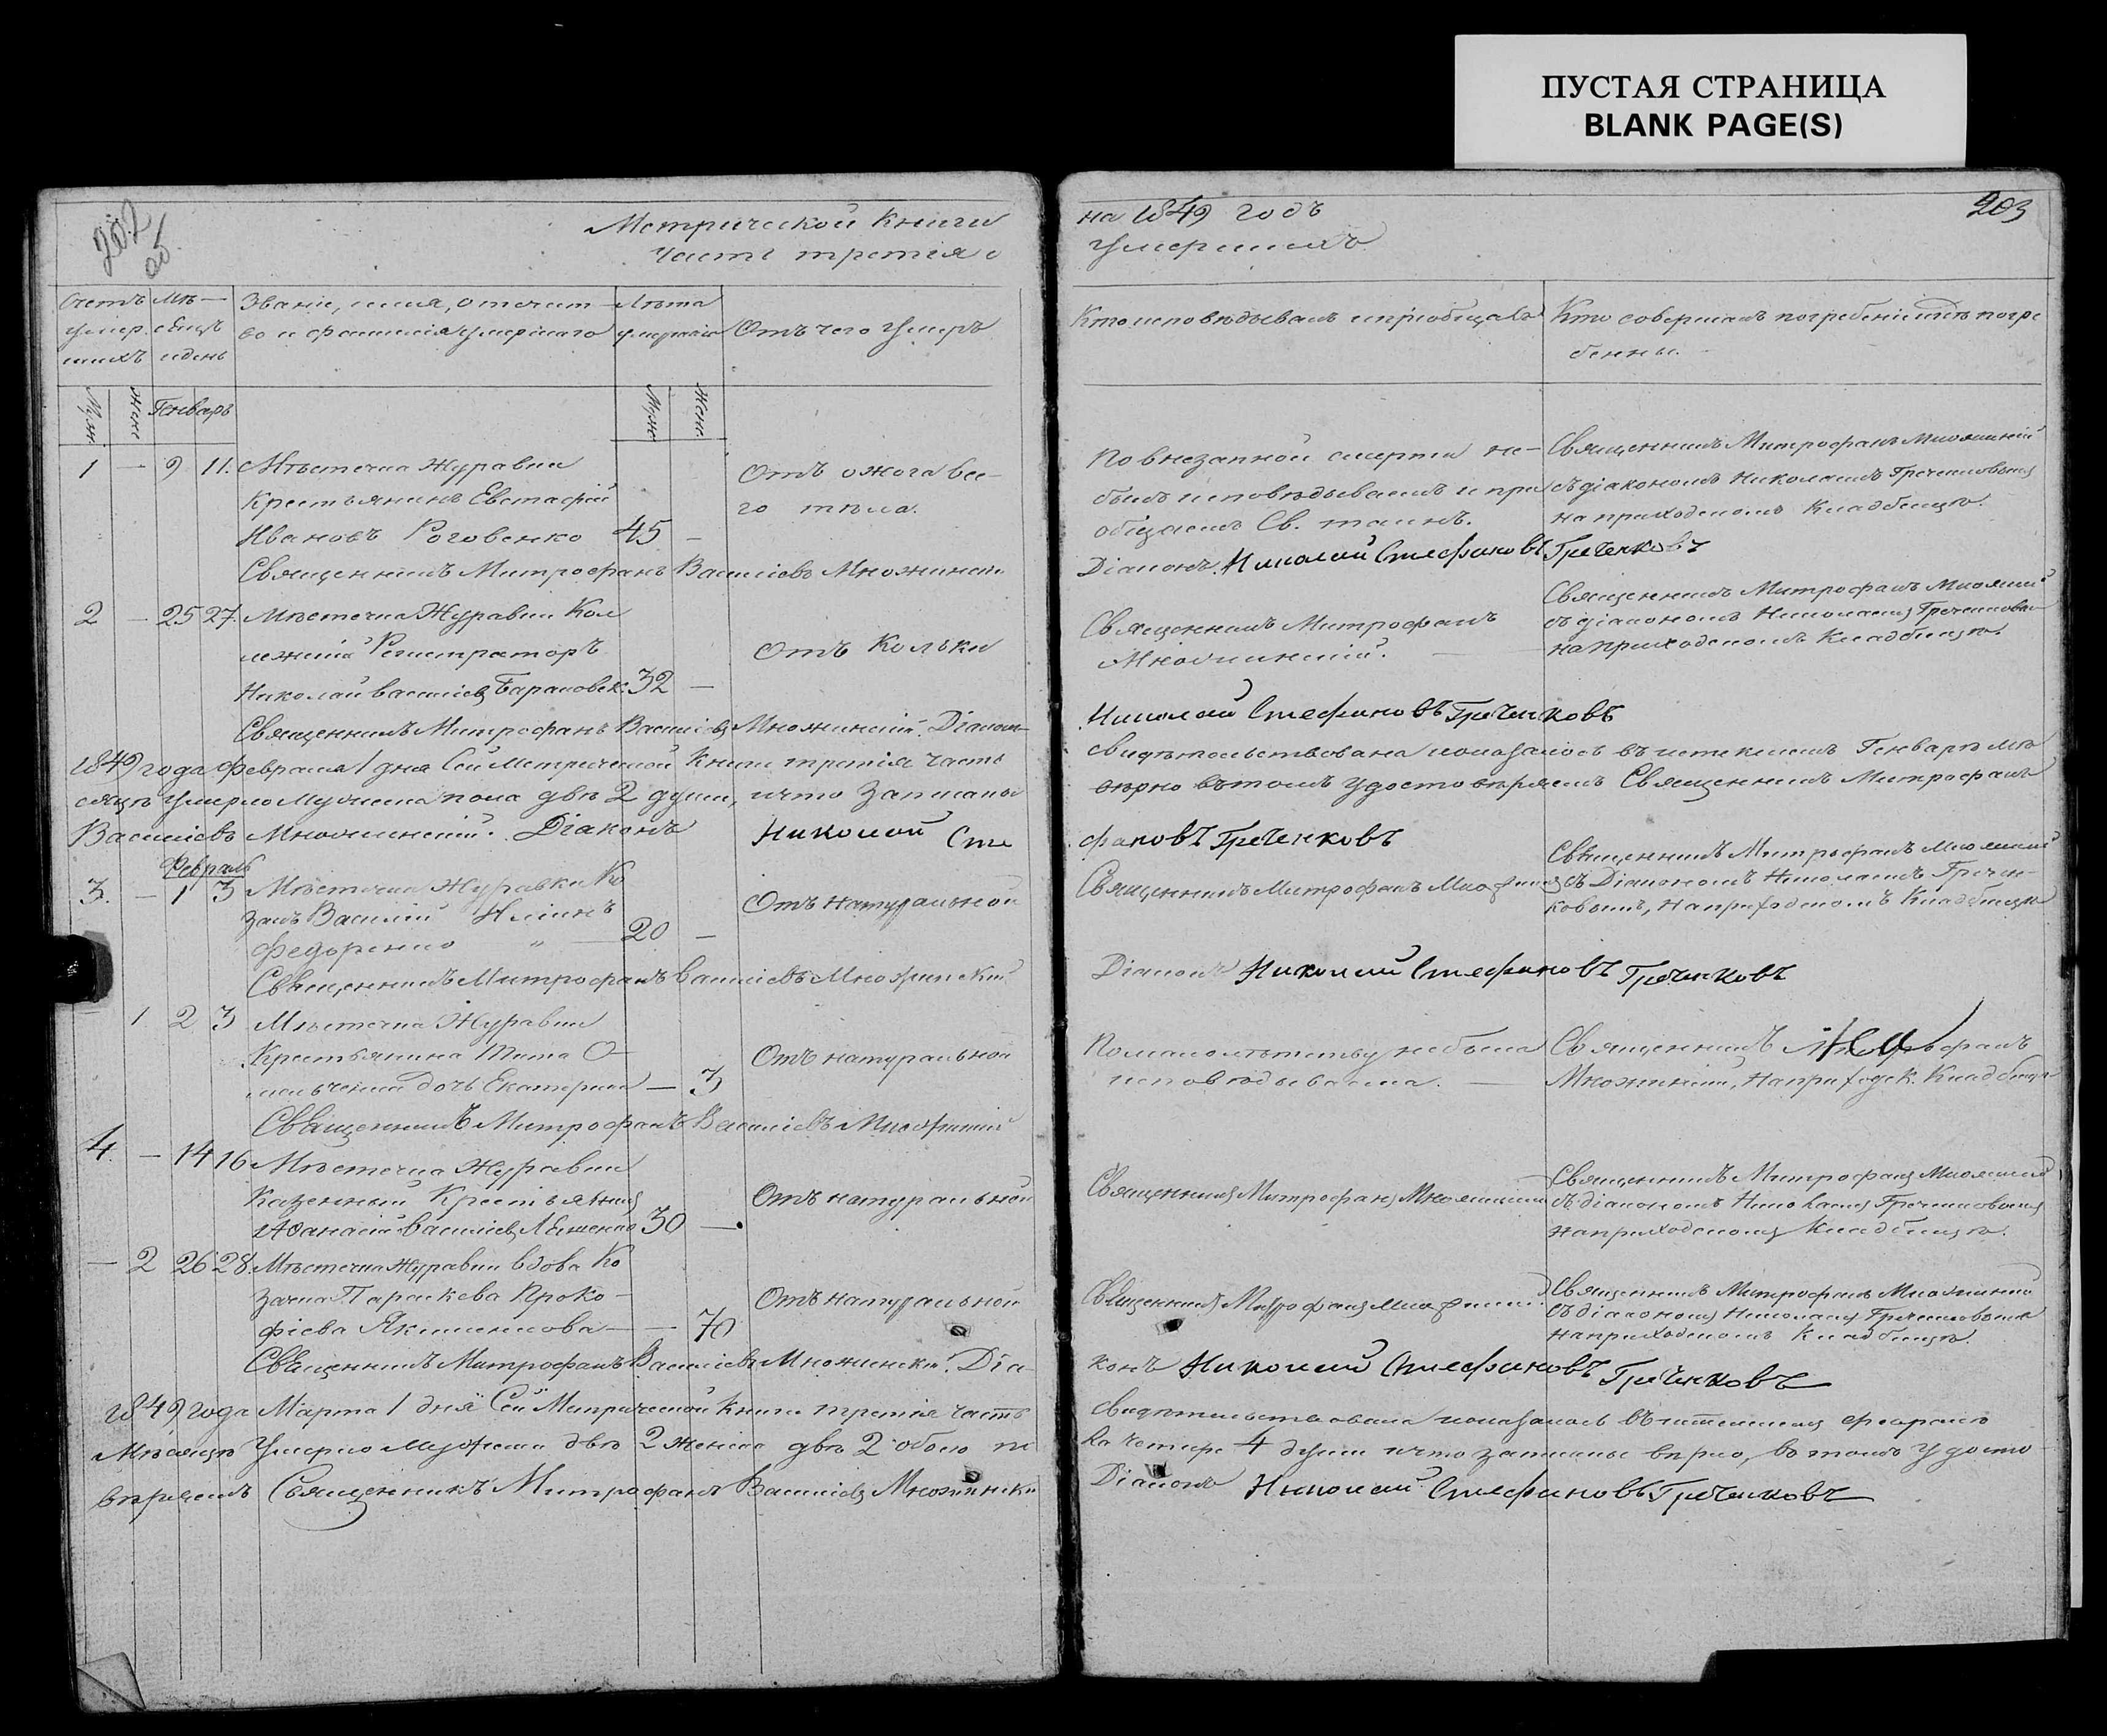 ПУСТАЯ СТРАНИЦА
BLANK PAGE(S)
202
об
Метрической Книги
Часть третія о
Счетъ умер шихъ
Мѣ сяцъ и день
Званіе, имя, отечест
во и фамилія умершаго
Лѣта умершаго
Отъ чего умеръ
Муж.
Жене
Генварь
Муже.
Жене.
1 — 9 11. Мѣстечка Журавки
Крестьянинъ Евстафій
Ивановъ Роговенко 45 —
Отъ ожога все-
го тѣла.
Священникъ Митрофанъ Василіевъ
2 — 25 27. Мѣстечка Журавки Кол
лежскій Регистраторъ
Николай Василіевъ 32 —
Отъ Кольки
Священникъ Митрофанъ Василіевъ Діаконъ
1849 года Февраля 1 дня Сей Метрической Книги третія часть
сяцѣ умерло мужеска пола двѣ 2 души, что записаны
Василіевъ Діаконъ Николай Сте
Февраль
3. — 1 3 Мѣстечка Журавки Ко
закъ Василій
Федоренко „ — 20 —
Отъ натуральной
Священникъ Митрофанъ Василіевъ
1 2 3 Мѣстечка Журавки
Крестьянина Тита
дочь Екатерина — 3
Отъ натуральной
Священникъ Митрофанъ Василіевъ
4. — 14 16 Мѣстечка Журавки
Казенный Крестьянинъ
Афанасій Василіевъ 30 —
Отъ натуральной
— 2 26 28. Мѣстечка Журавки вдова Ко
зачка Параскева Проко-
фіева Якименкова — — 70
Отъ натуральной
Священникъ Митрофанъ Василіевъ Діа-
1849 года Марта 1 дня Сей Метрической Книги третія часть
Мѣсяцѣ умерло мужеска двѣ 2 женска двѣ 2 обоего
вѣряемъ Священникъ Митрофанъ Василіевъ
на 1849 годъ
203
умершихъ
Кто исповѣдывалъ и пріобщалъ
Кто совершалъ погребеніе и гдѣ погре
бенны.
По внезапной смерти не-
былъ исповѣдываемъ и прі
общаемъ Св. таинъ.
Священникъ Митрофанъ
съ діакономъ Николаемъ Греченковымъ
на приходскомъ Кладбищѣ.
Діаконъ Николай Стефановъ Греченковъ
Священникъ Митрофанъ
Священникъ Митрофанъ
съ діакономъ Николаемъ
на приходскомъ Кладбищѣ.
Николай Стефановъ Греченковъ
свидѣтельствована показалось въ истекшемъ Генварѣ мѣ
вѣрно въ томъ удостовѣряемъ Священникъ Митрофанъ
фановъ Греченковъ
Священникъ Митрофанъ
Священникъ Митрофанъ
съ Діакономъ Николаемъ Гречен-
ковымъ, на приходскомъ Кладбищѣ
Діаконъ Николай Стефановъ Греченковъ
По малолѣтству не была
исповѣдываема. —
Священникъ Митрофанъ
на приходск. Кладбищѣ
Священникъ Митрофанъ
Священникъ Митрофанъ
съ діакономъ Николаемъ Греченковымъ
на приходскомъ Кладбищѣ.
Священникъ Митрофанъ
Священникъ Митрофанъ
съ діакономъ Николаемъ Греченковымъ
на приходскомъ Кладбищѣ.
конъ Николай Стефановъ Греченковъ
свидѣтельствована показалось въ истекшемъ Февралѣ
ла четыре 4 души что записаны вѣрно, въ томъ удосто
Діаконъ Николай Стефановъ Греченковъ